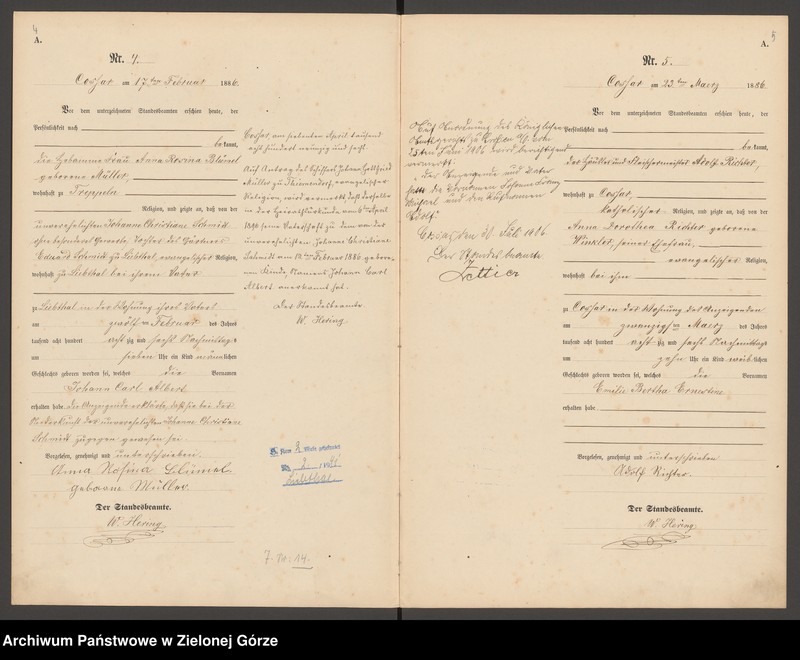 4
A.
Nr. 4.
Cossar am 17ten Februar 1886.
Vor dem unterzeichneten Standesbeamten erschien heute, der
Persönlichkeit nach
bekannt,
die Hebamme Frau Anna Rosina Blümel
geborene Müller,
wohnhaft zu Treppeln
Religion, und zeigte an, daß von der
unverehelichten Johanne Christiane Schmidt
ohne besonderes Gewerbe, Tochter des Gärtners
Eduard Schmidt zu Liebthal, evangelischer Religion,
wohnhaft zu Liebthal bei ihrem Vater
zu Liebthal in der Wohnung ihres Vaters
am zwölften Februar des Jahres
tausend acht hundert achtzig und sechs Nachmittags
um sieben Uhr ein Kind männlichen
Geschlechts geboren worden sei, welches die Vornamen
Johann Carl Albert
erhalten habe. die Anzeigende erklärte, daß sie bei der
Niederkunft der unverehelichten Johanne Christiane
Schmidt zugegen gewesen sei.
Vorgelesen, genehmigt und unterschrieben
Anna Rosina Blümel
geborne Müller.
Der Standesbeamte.
W. Hering
Cossar, am siebenten April tausend
acht hundert neunzig und sechs.
Auf Antrag des Johann Gottfried
Müller zu evangelischer
Religion, wird vermerkt, daß derselbe
in der Heirathsurkunde vom April
1896 seine Vaterschaft zu dem von der
unverehelichten Johanne Christiane
Schmidt am 12ten Februar 1886 gebore-
nen Kinde, Namens Johann Carl
Albert anerkannt hat.
Der Standesbeamte
W. Hering
Liebthal
7. 10. 14.
5
A.
Nr. 5.
Cossar am 23ten Maerz 1886
Vor dem unterzeichneten Standesbeamten erschien heute, der
Persönlichkeit nach
bekannt,
der Häusler und Fleischermeister Adolf Richter,
wohnhaft zu Cossar,
katholischer Religion, und zeigte an, daß von der
Anna Dorothea Richter geborene
Winkler, seiner Ehefrau
evangelischer Religion,
wohnhaft bei ihm
zu Cossar in der Wohnung des Anzeigenden
am zwanzigsten Maerz des Jahres
tausend acht hundert achtzig und sechs Nachmittags
um zehn Uhr ein Kind weiblichen
Geschlechts geboren worden sei, welches die Vornamen
Emilie Bertha Ernestine
erhalten habe
Vorgelesen, genehmigt und unterschrieben
Adolf Richter.
Der Standesbeamte.
W. Hering
Auf Anordnung des Königlichen
Amtsgerichts zu Crossen a/O. vom
Juni 1906 wird berichtigend
vermerkt:
der Anzeigende und Vater
die Vornamen Johann Franz
und den Rufnamen
Adolf
Cossar, den Juli 1906
Der Standesbeamte
Archiwum Państwowe w Zielonej Górze